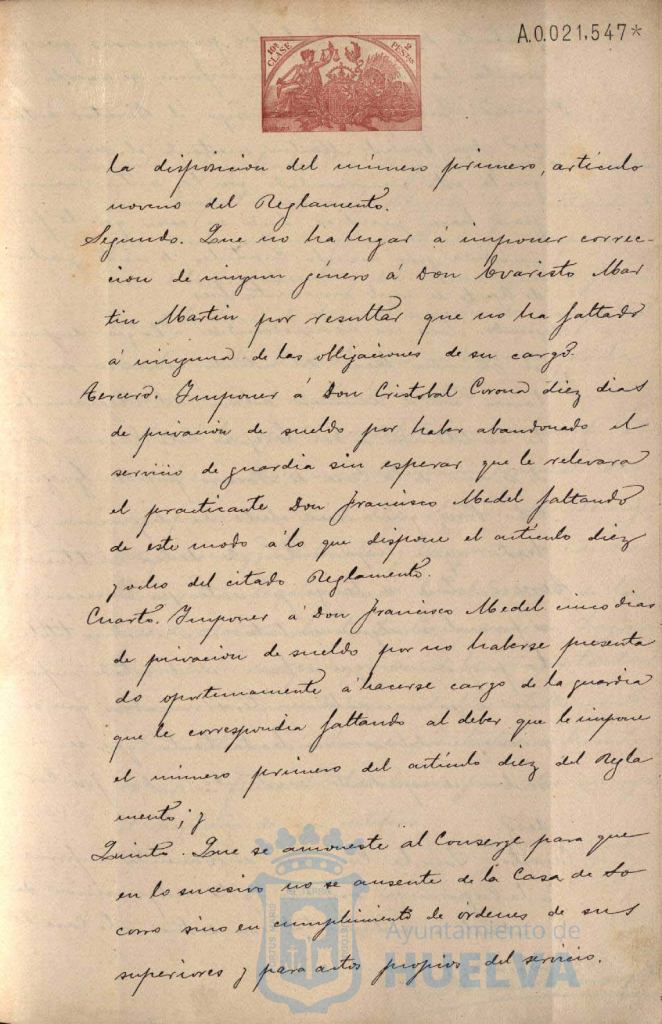 A.0.021.547*
10ª CLASE 2 PESETAS
la disposicion del número primero, artículo
noveno del Reglamento.
Segundo. Que no ha lugar á imponer correc-
cion de ningun género á Don Evaristo Mar
tin Martin por resultar que no ha faltado
á ninguna de las obligaciones de su cargo.
Tercero. Imponer á Don Cristobal Corona diez dias
de privacion de sueldo por haber abandonado el
servicio de guardia sin esperar que le relevara
el practicante Don Francisco Medel faltando
de este modo á lo que dispone el artículo diez
y ocho del citado Reglamento.
Cuarto. Imponer á Don Francisco Medel cinco dias
de privacion de sueldo por no haberse presenta
do oportunamente á hacerse cargo de la guardia
que le correspondia faltando al deber que le impone
el número primero del artículo diez del Regla
mento; y
Quinto. Que se amoneste al Conserge para que
en lo sucesivo no se ausente de la Casa de So
corro sino en cumplimiento de órdenes de sus
superiores y para actos propios del servicio.
Ayuntamiento de
HUELVA